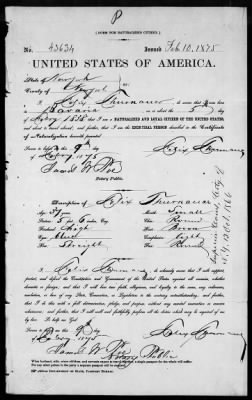 P
[FORM FOR NATURALIZED CITIZEN.]
No. 43634 Issued Feb 10. 1875
UNITED STATES OF AMERICA.
State of New York
County of New York
I, Felix Thurnauer, do swear that I was born in
Bavaria on or about the 5 day
of that I am a NATURALIZED AND LOYAL CITIZEN OF THE UNITED STATES,
and about to travel abroad; and further, that I am the IDENTICAL PERSON described in the Certificate
of Naturalization herewith presented.
Sworn to before me this 9th day
of 1875
James W. Poe
Notary Public.
Description of Felix Thurnauer
Age: 37 years Mouth: Small
Stature: 5 feet 6 inches, Eng. Chin: Round
Forehead: High Hair: Brown
Eyes: Blue Complexion: light
Nose: Straight Face: Round
I, do solemnly swear that I will support, protect, and
defend the Constitution and Government of the United States against all enemies, whether
domestic or foreign; and that I will bear true faith, allegiance, and loyalty to the same, any ordinance,
resolution, or law of any State, Convention, or Legislature to the contrary notwithstanding; and further,
that I do this with a full determination, pledge, and purpose, without any mental reservation or evasion
whatsoever; and further, that I will well and faithfully perform all the duties which may be required of me
by law: So help me God.
Sworn to before me this 9 day
of 1875
James W. Poe
Notary Public